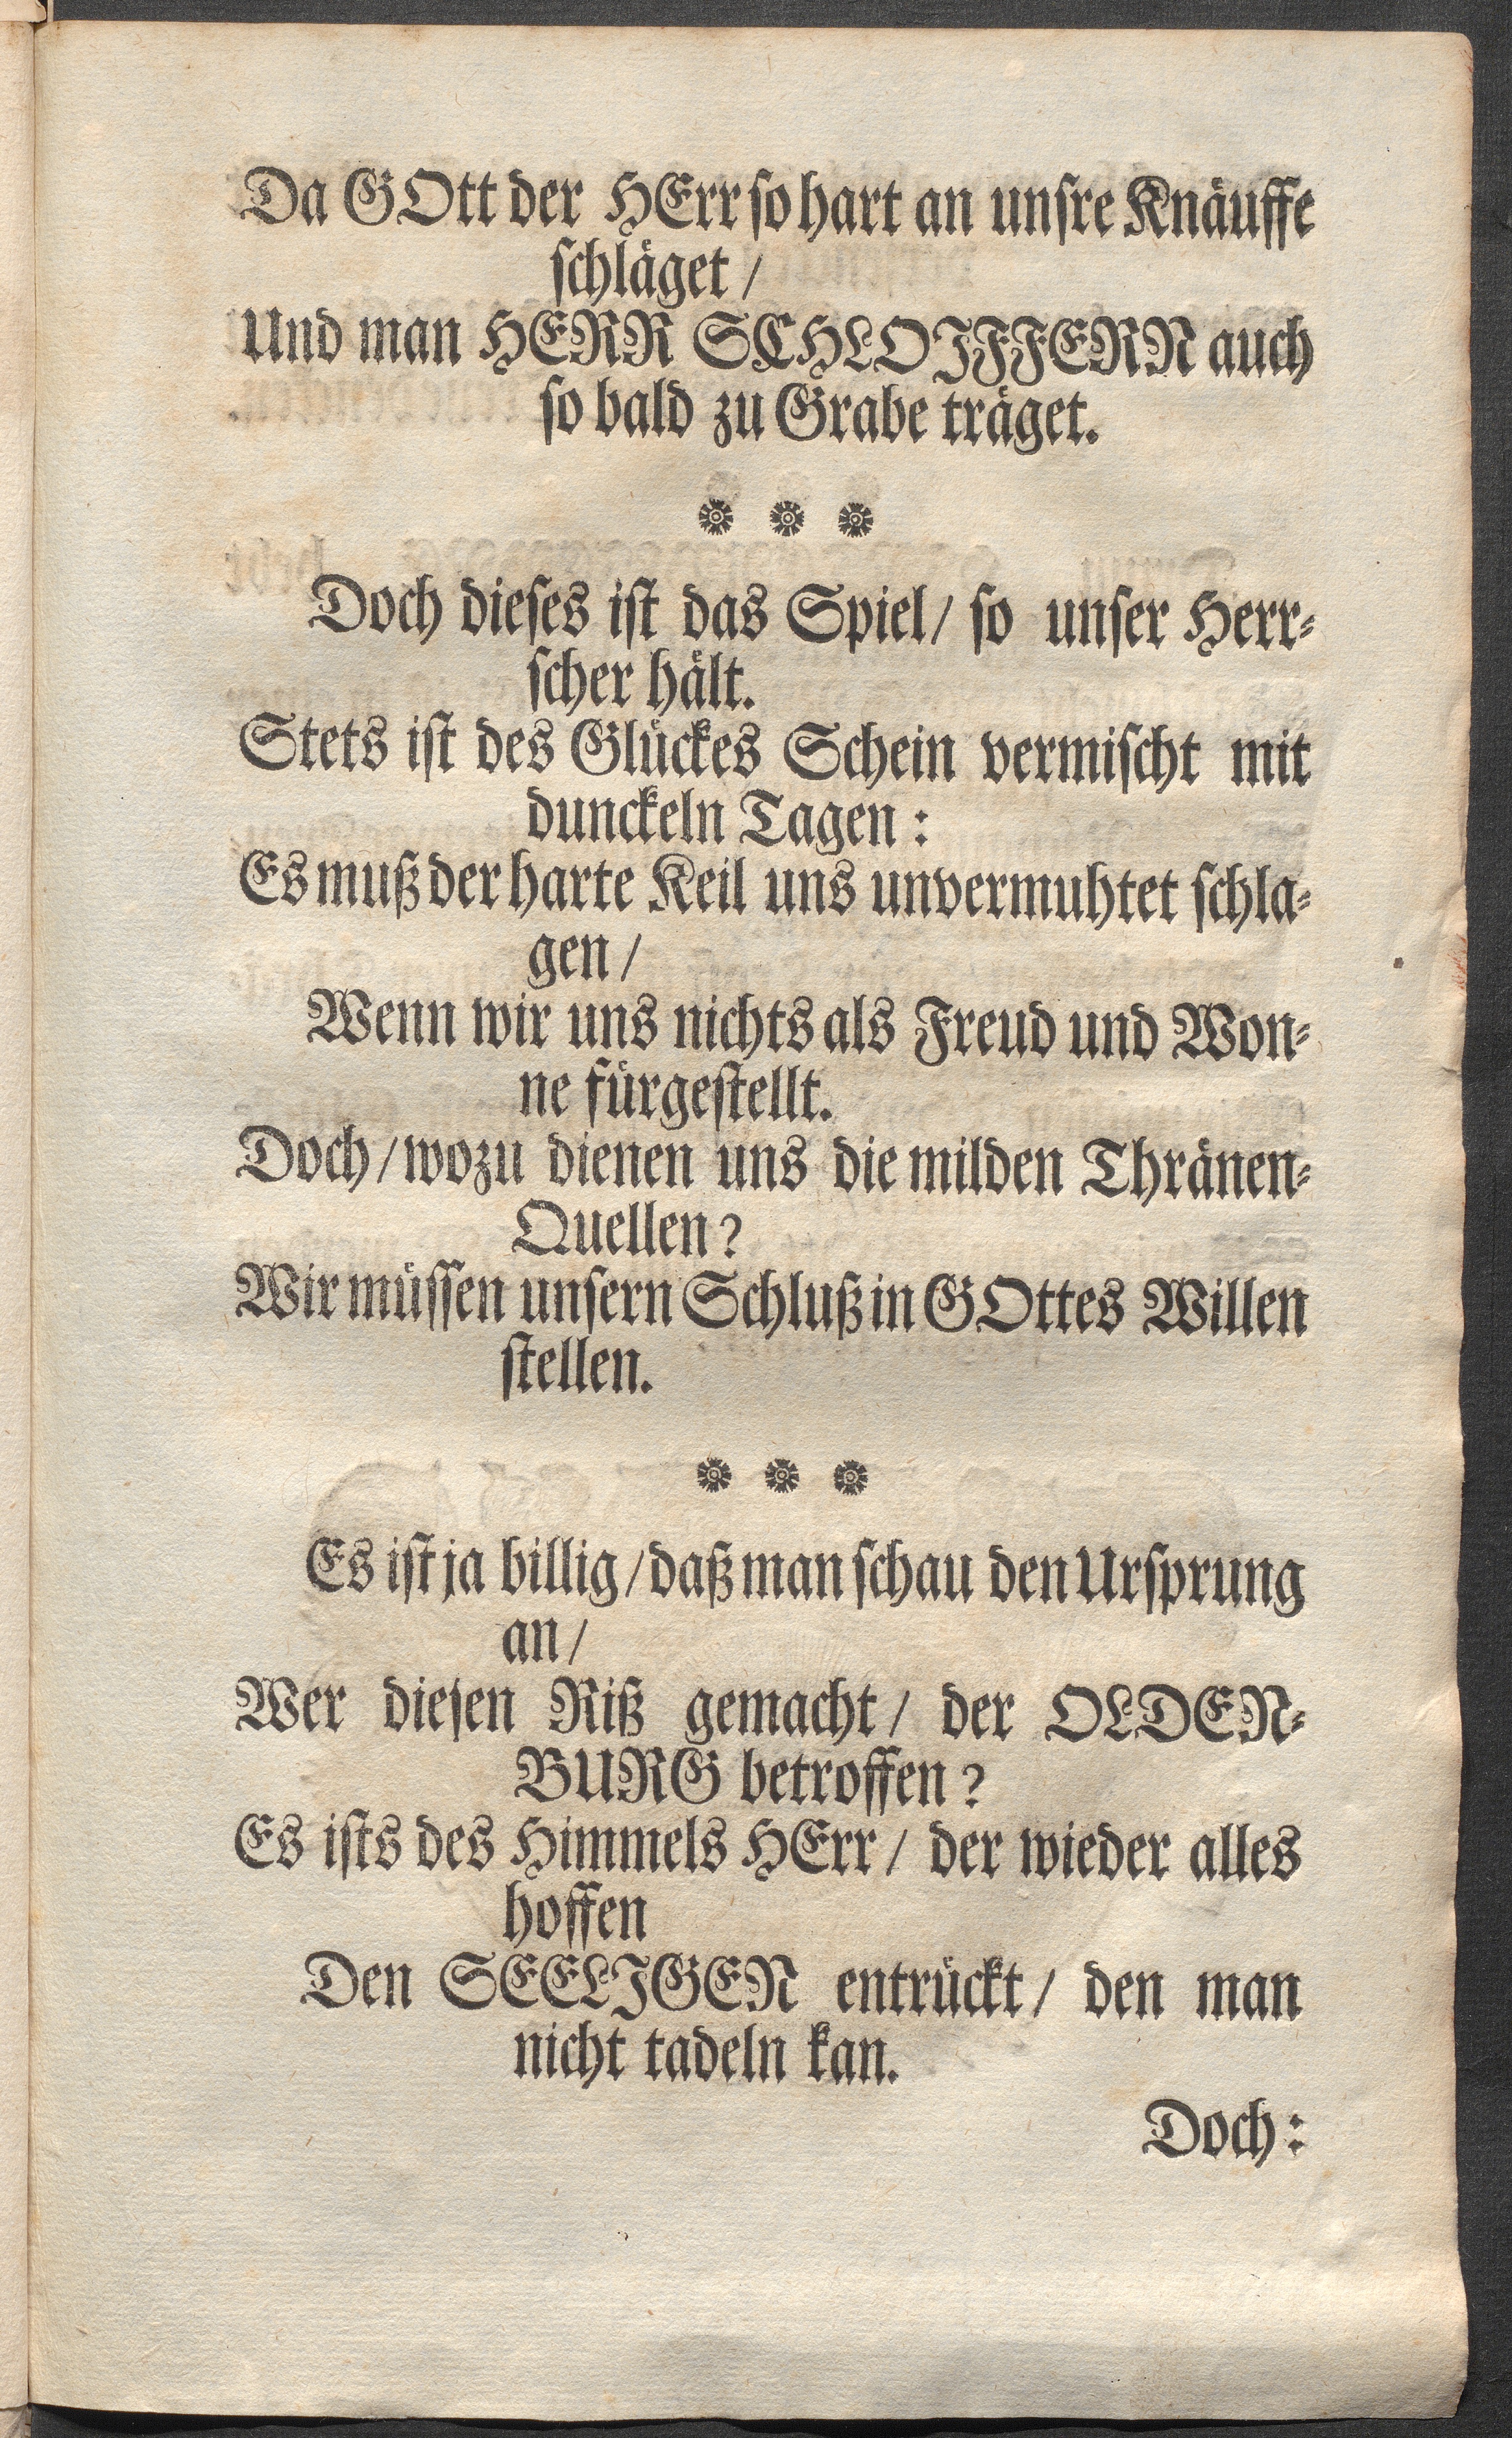 Da GOtt der HErr ſo hart an unſre Knäuffe
ſchläget /
Und man HERR SCHLOIFFERN auch
ſo bald zu Grabe träget.
Doch dieſes iſt das Spiel / ſo unſer Herr-
ſcher hält.
Stets iſt des Glückes Schein vermiſcht mit
dunckeln Tagen:
Es muß der harte Keil uns unvermuhtet ſchla-
gen /
Wenn wir uns nichts als Freud und Won-
ne fürgeſtellt.
Doch / wozu dienen uns die milden Thränen-
Quellen?
Wir müſſen unſern Schluß in GOttes Willen
ſtellen.
Es iſt ja billig / daß man ſchau den Urſprung
an /
Wer dieſen Riß gemacht / der OLDEN-
BURG betroffen?
Es iſts des Himmels HErr / der wieder alles
hoffen
Den SEELIGEN entrückt / den man
nicht tadeln kan.
Doch: